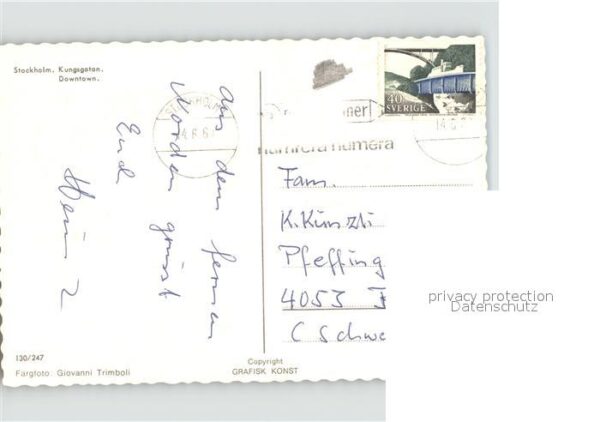 Stockholm. Kungsgatan.
Downtown.
aus dem fernen
Norden grüsst
Euch
Heinz
130/247
Färgfoto: Giovanni Trimboli
Copyright
GRAFISK KONST
STOCKHOLM
40
SVERIGE
numrera
Fam.
K. Künzli
Pfeffing
4053
Schwe
privacy protection
Datenschutz